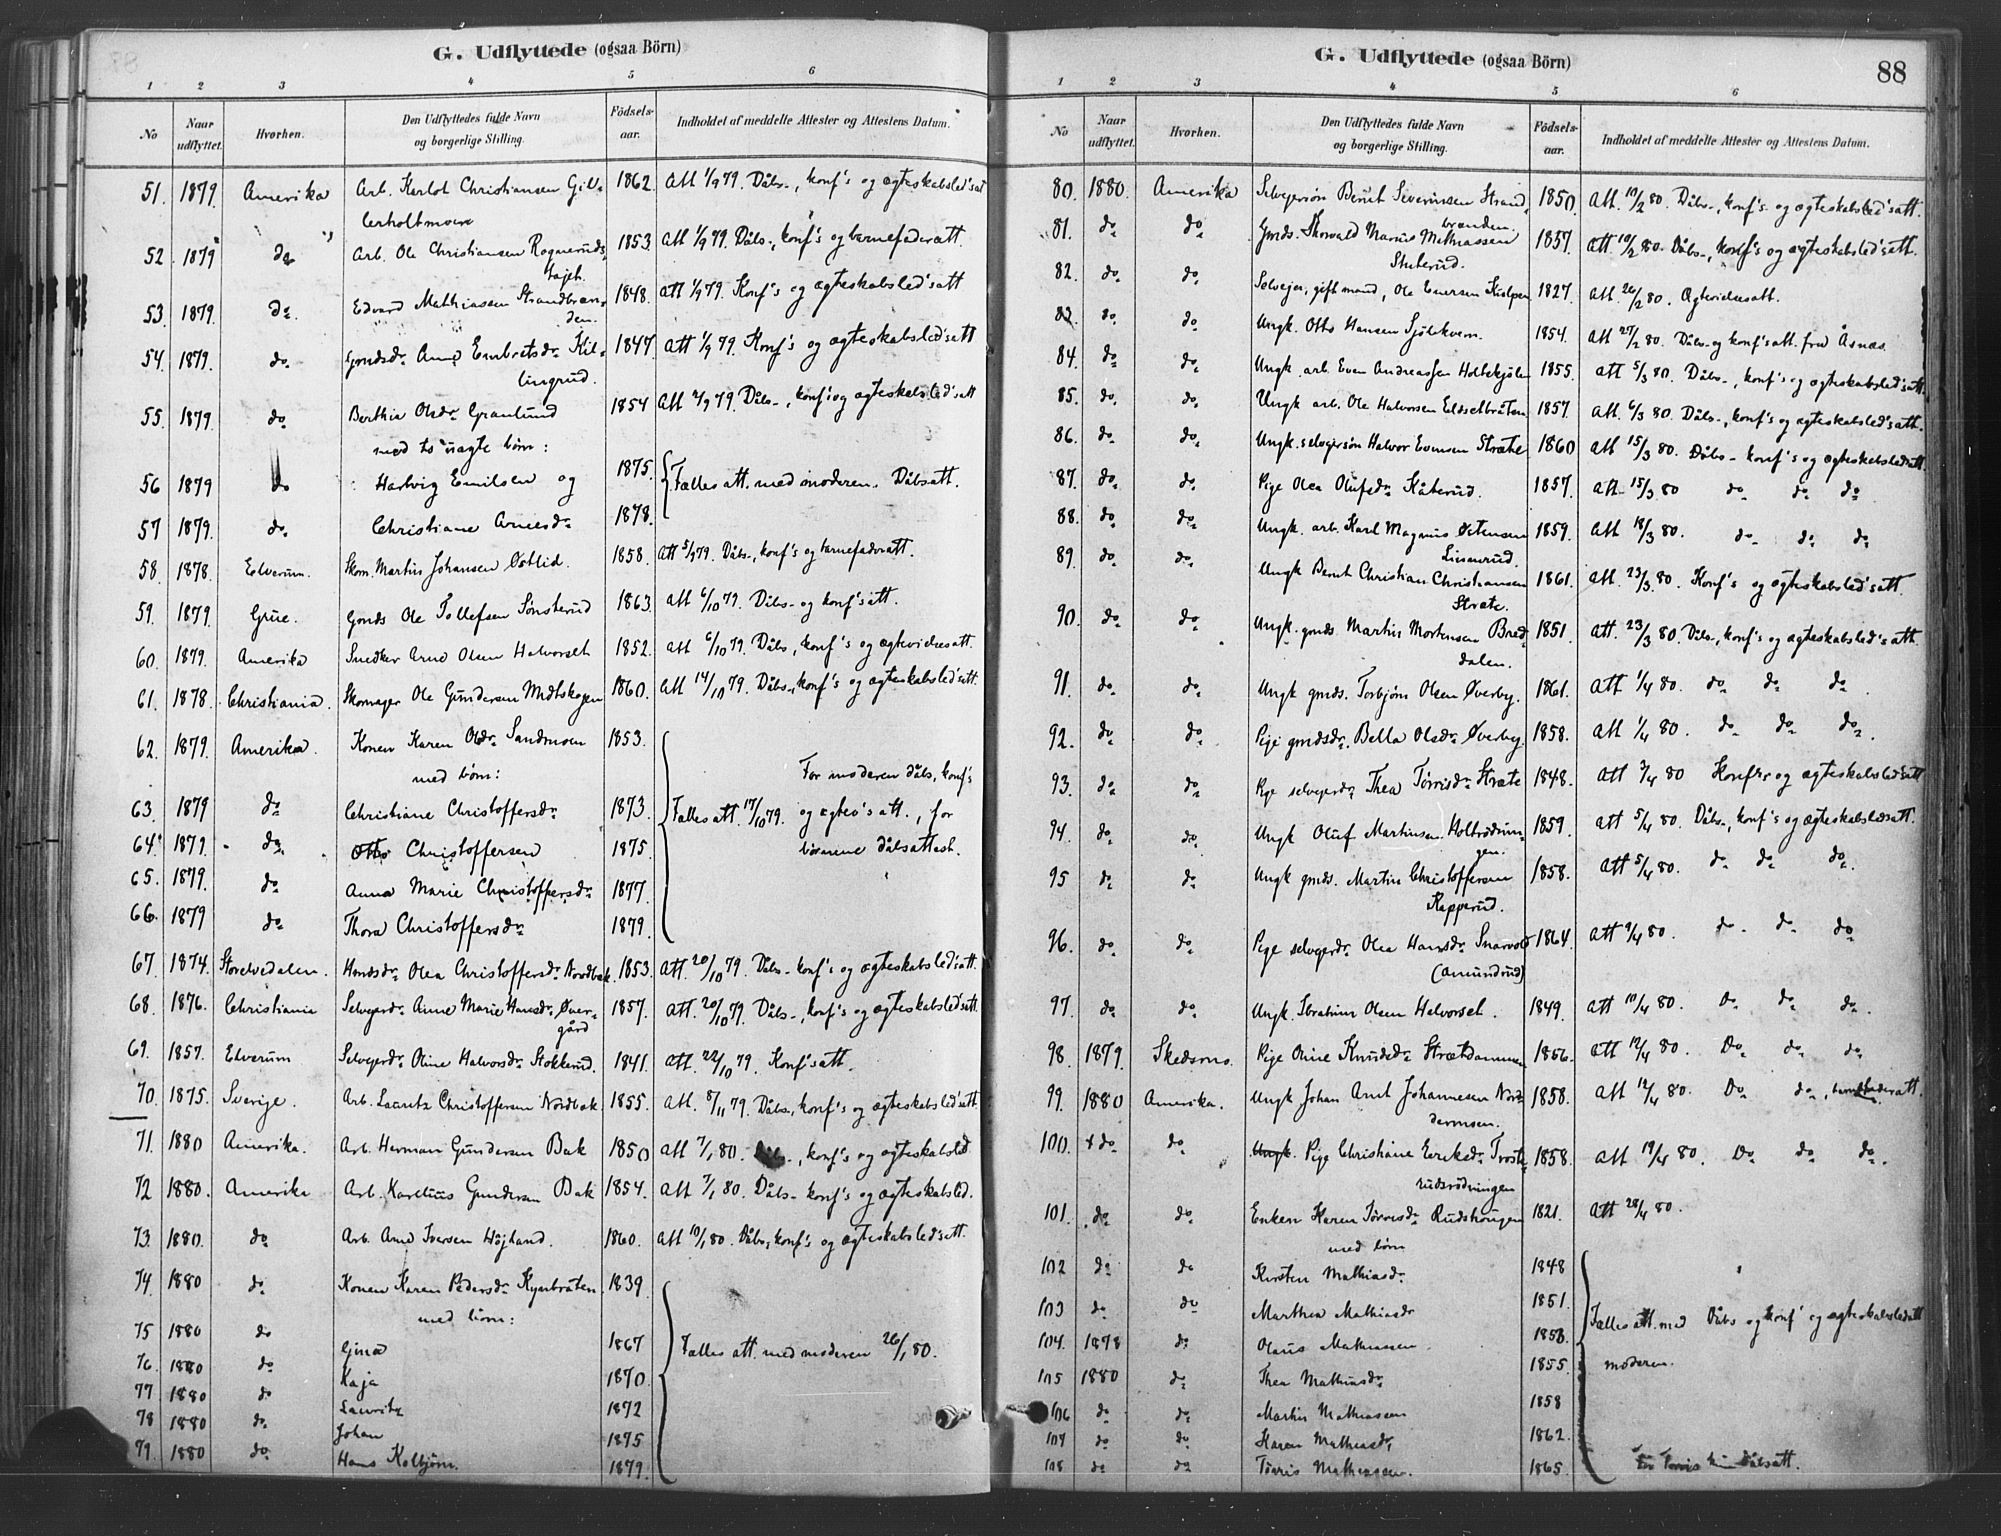 G. Udflyttede (ogsaa Börn)
1 2 3 4 5 6
No
Naar udflyttet.
Hvorhen.
Den Udflyttedes fulde Navn og borgerlige Stilling.
Födsels-aar.
Indholdet af meddelte Attester og Attestens Datum.
51. 1879. Amerika Arb. Karlot Christiansen Gil- 1862. Att 1/9 79. Dåbs-, konf's og ægteskabsled'satt
lerholtmoen
52 1879 do Arb. Ole Christiansen Rognerud 1853 Att 1/9 79. Dåbs-, konf's og barnefaderatt.
53. 1879. do. Edvard Mathiassen Strandbræn- 1848. Att 1/9 79. Konf's og ægteskabsled'satt
den.
54. 1879. do. Gmdsdr. Embretsdr. Kil- 1847 Att 1/9 79. Konf's og ægteskabsled'satt
lingrud.
55. 1879. do Berthe Olsdr. Granlund 1854 Att 2/9 79. Dåbs-, konf's og ægteskabsled'satt
med to uægte børn:
56 1879 do Hartvig Emilsen og 1875. Fælles att. med moderen. Dåbsatt.
57 1879. do. Christiane Arnesdr 1878.
58. 1878. Elverum. Skom. Martin Johansen Østlid. 1858. Att 5/9 79. Dåbs-, konf's og barnefaderatt.
59. 1879. Grue. Gmds Ole Tollefsen Sønsterud 1863. Att 6/10 79. Dåbs- og konf'satt.
60. 1879. Amerika Snedker Arne Olsen Halvorset 1852. Att 6/10 79. Dåbs, konf's og ægtevidsesatt.
61. 1878. Christiania. Skomager Ole Gundersen Midtskogen 1860. Att 14/10 79. Dåbs-, konf's og ægteskabsled'satt.
62. 1879. Amerika. Konen Karen Olsdr. Sandmoen 1853.
med børn: For moderen dåbs, konf's
63. 1879 do Christiane Christoffersdr. 1873. Fælles att. 17/10 79. og ægtev's att., for
64. 1879. do. Otto Christoffersen 1875. børnene dåbsattest.
65. 1879. do Anna Marie Christoffersdr. 1877.
66. 1879 do Thora Christoffersdr 1879.
67. 1874. Storelvedalen. Olea Christoffersdr. Nordbæk. 1853. Att. 20/10 79. Dåbs- konf's og ægteskabsled'satt.
68. 1876. Christiania Selvejerdr. Anne Marie Hansdr. Øver- 1857. Att. 20/10 79. Dåbs-, konf's og ægteskabsled'satt.
gård
69. 1857. Elverum Selvejerdr. Oline Halvorsdr. Stokkerud. 1841. Att. 22/10 79. Konf'satt.
70. 1875. Sverige. Arb. Lauritz Christoffersen Nordbæk 1855. Att. 8/11 79. Dåbs-, konf's og ægteskabsled'satt.
71. 1880 Amerika. Arb. Herman Gundersen Bæk 1850 Att 7/1 80. Dåbs-, konf's og ægteskabsled.
72 1880. Amerika Arb. Karelius Gundersen Bæk 1854. Att 7/1 80. Dåbs- konf's og ægteskabsled.
73. 1880. do Arb. Arne Iversen Højhand. 1860. Att 10/1 80. Dåbs, konf's og ægteskabsled'satt.
74 1880 do Konen Karen Pedersdr. Kynbråten 1839
med børn:
75 1880 do Gina 1867 Fælles att. med moderen 26/1 80.
76. 1880 do Kaja 1870
77 1880 do Lauritz 1872
78 1880 do. Johan 1875
79. 1880 do. Hans Kolbjørn. 1879.
G. Udflyttede (ogsaa Börn)
88
1 2 3 4 5 6
No
Naar udflyttet.
Hvorhen.
Den Udflyttedes fulde Navn og borgerlige Stilling.
Födsels-aar.
Indholdet af meddelte Attester og Attestens Datum.
80. 1880. Amerika Selvejersøn Bernt Severinsen Strand- 1850. Att. 10/2 80. Dåbs-, konf's- og ægteskabsled'satt.
brænden.
81. do do. Gmds. Thorvald Marius Mathiassen 1857. Att. 10/2 80. Dåbs-, konf's og ægteskabsled'satt.
Stuterud.
82. do do. Selvejer, gift mand, Ole Evensen Kjølpen 1827. Att. 26/2 80. Ægtevidsesatt.
83. do do. Ungk. Otto Hansen Sjølikvern. 1854. Att 27/2 80. Dåbs- og konf'satt. fra Åsnæs.
84. do do. Ungk. arb. Even Andreassen Holtekjølen 1855. Att 5/3 80. Dåbs-, konf's og ægteskabsled'satt.
85. do. do. Ungk arb. Ole Halvorsen Eldselbråten 1857. Att. 6/3 80. Dåbs-, konf's og ægteskabsled'satt.
86. do. do. Ungk. selvejersøn Halvor Evensen Stræte 1860 Att 15/3 80. Dåbs- konf's og ægteskabsled'satt.
87. do. do. Pige Olea Olufsdr. Kåterud. 1857. Att 15/3 80 do do do
88. do do. Ungk. arb. Karl Magnus Østensen 1859. Att 18/3 80. do. do do
Linnerud.
89. do do. Ungk Bernt Christian Christiansen 1861. Att. 23/3. 80. Konf's og ægteskabsled'satt.
Stræte.
90. do do. Ungk. gmds. Martin Mortensen Bred- 1851. Att. 23/3 80. Dåbs-, konf's og ægteskabsled'satt.
dalen.
91. do do. Ungk gmds. Torbjørn Olsen Øverby. 1861. Att 1/4 80. do do do.
92. do do. Pige gmdsdr. Bella Olsdr. Øverby. 1858. Att 1/4 80. do do do.
93. do. do. Pige selvejerdr. Thea Tørrisdr. Stræte 1848. Att 3/4 80 Konfs og ægteskabsled'satt
94. do. do. Ungk Oluf Martinsen Holtrødnin- 1859. Att 5/4 80. Dåbs-, konf's og ægteskabsledsatt.
gen.
95 do do. Ungk gmds. Martin Christoffersen 1858. Att 5/4 80. do do do.
Kapperud.
96. do. do. Pige selvejerdr. Olea Hansdr. Snarvold 1864. Att 9/4 80. do do do
(Amundrud)
97. do do. Ungk. Ibrahim Olsen Halvorset. 1849. Att 10/4 80. Do do do.
98. 1879. Skedsmo. Pige Oline Knudsdr. Strætdammen 1856. Att 12/4 80. Do. do. do
99. 1880 Amerika. Ungk Johan Arnt Johannesen Nor- 1858. Att 12/4 80. Do do, barnefaderatt.
dermsen.
100. do do. Ungk. Pige Christiane Eriksdr. Troste- 1858. Att 19/4 80. Do do do.
rudsrødningen
101. do do. Enken Karen Tørrisdr. Rudshaugen 1821. Att 28/4 80.
med børn
102 do do Kirsten Mathiasdr. 1848
103 do do Marthea Mathiasdr 1851. Fælles att. med Dåbs og konf' og ægteskabsledsatt
104. 1878 do. Olaus Mathiassen. 1853. moderen.
105 1880 do. Thea Mathiasdr. 1855
106 do do. Martin Mathiassen 1858
107 do do. Karen Mathiasdr. 1862.
108 do do Tørris Mathiassen. 1865. For Tørris kun Dåbsatt.